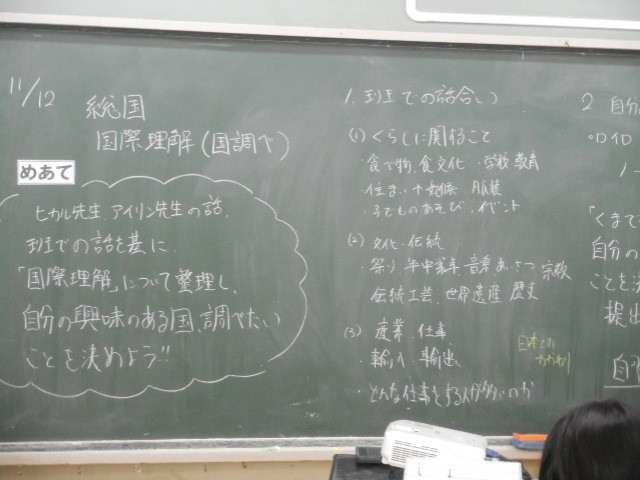 11/12
総国
国際理解(国調べ)
めあて
ヒカル先生、アイリン先生の話、
班での話を基に、
「国際理解」について整理し、
自分の興味のある国、調べたい
ことを決めよう!!
1. 班での話合い
(1) くらしに関すること
・食べ物、食文化 ・学校教育
・住まい 服装
・子どものあそび・イベント
(2) 文化・伝統
・祭り 年中行事 音楽 あいさつ 宗教
伝統工芸 世界遺産 歴史
(3) 産業・仕事
・輸入 輸出
・どんな仕事をする人が多いのか
日本との
2 自分
・ロイロ
ノー
「くまで
自分の
ことを決
提出